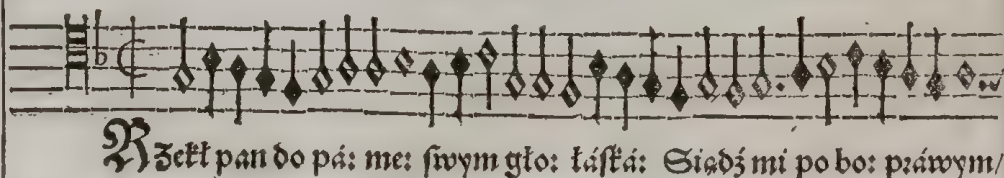 Rzekł pan do pá: me: swym gło: łáská: Siądź mi po bo: práwym/